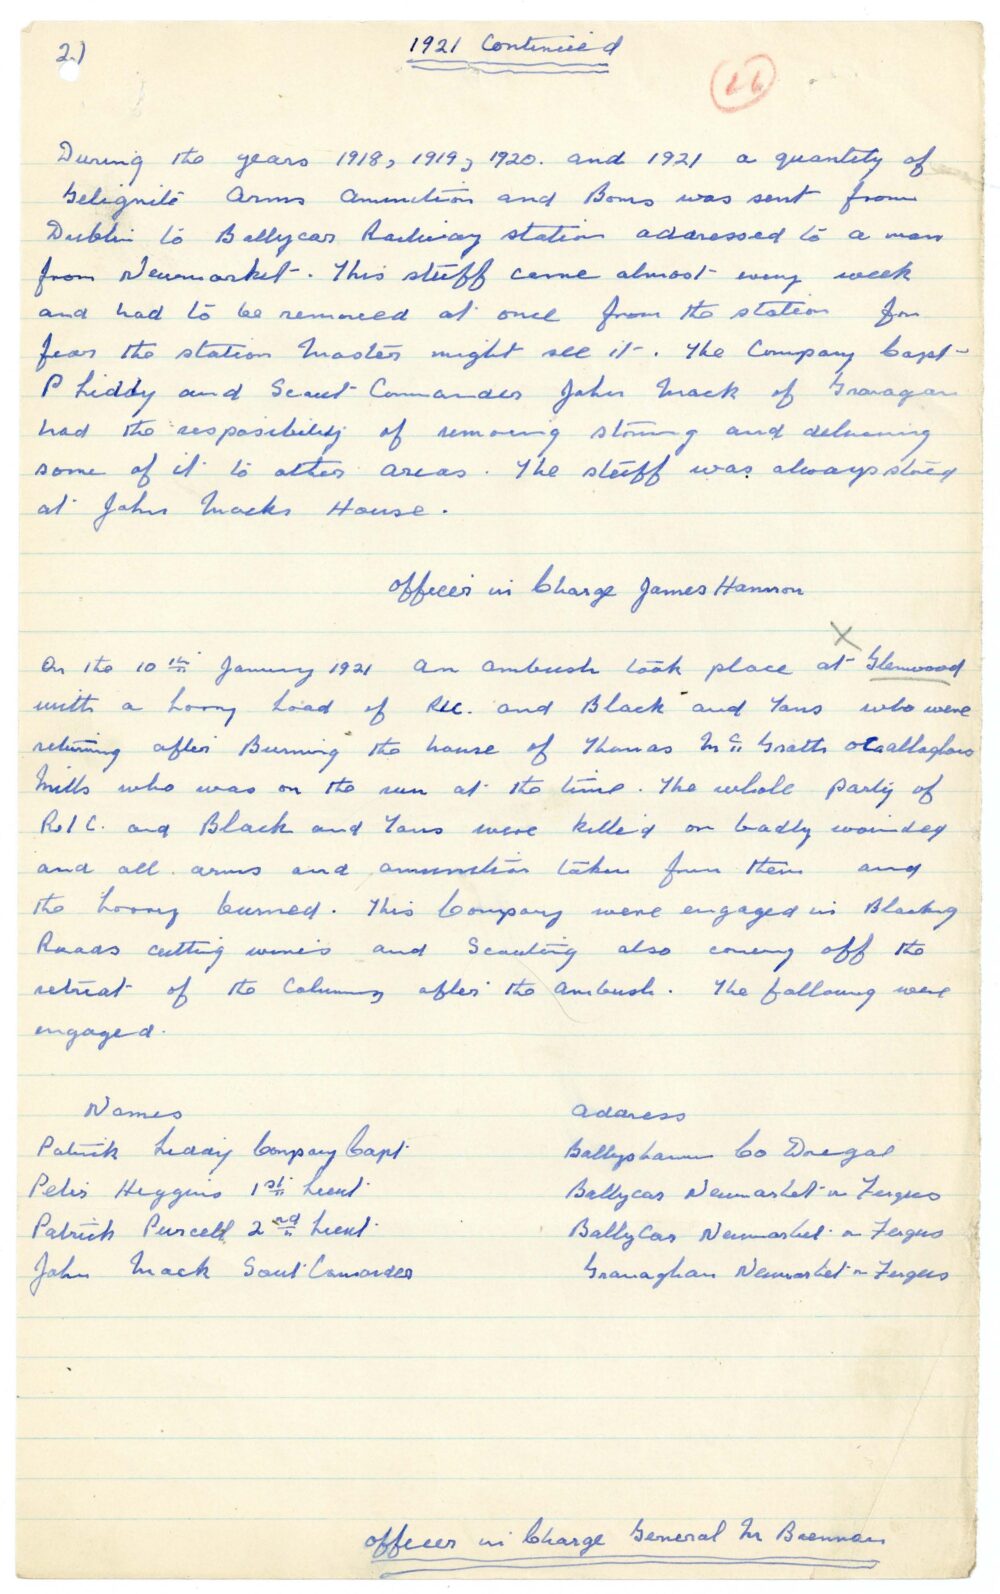 2)
1921 Continued
26
During the years 1918, 1919, 1920. and 1921 a quantity of
Gelignite Arms Amunition and Boms was sent from
Dublin to Ballycar Railway station addressed to a man
from Newmarket. This stuff came almost every week
and had to be removed at once from the station for
fear the station Master might see it. The Company Capt
P Liddy and Scout Commander John Mack of Granagan
had the resposibility of removing storing and delivering
some of it to other areas. The stuff was always stored
at John Macks House.
Officer in Charge James Hannon
X
On the 10th January 1921 an ambush took place at Glenwood
with a Lorry Load of RIC. and Black and Tans who were
returning after Burning the house of Thomas Mc Grath oCallaghans
Mills who was on the run at the time. The whole party of
R.I.C. and Black and Tans were killed or badly wounded
and all arms and amunition taken from them and
the Lorry burned. This Company were engaged in Blocking
Roads cutting wires and Scouting also covering off the
retreat of the Column after the ambush. The following were
engaged.
Names Address
Patrick Liddy Company Capt Ballyshannon Co Donegal
Peter Heggins 1st Lieut Ballycar Newmarket on Fergus
Patrick Purcell 2nd Lieut BallyCar Newmarket on Fergus
John Mack Scout Comander Granaghan Newmarket on Fergus
Officer in Charge General M Brennan